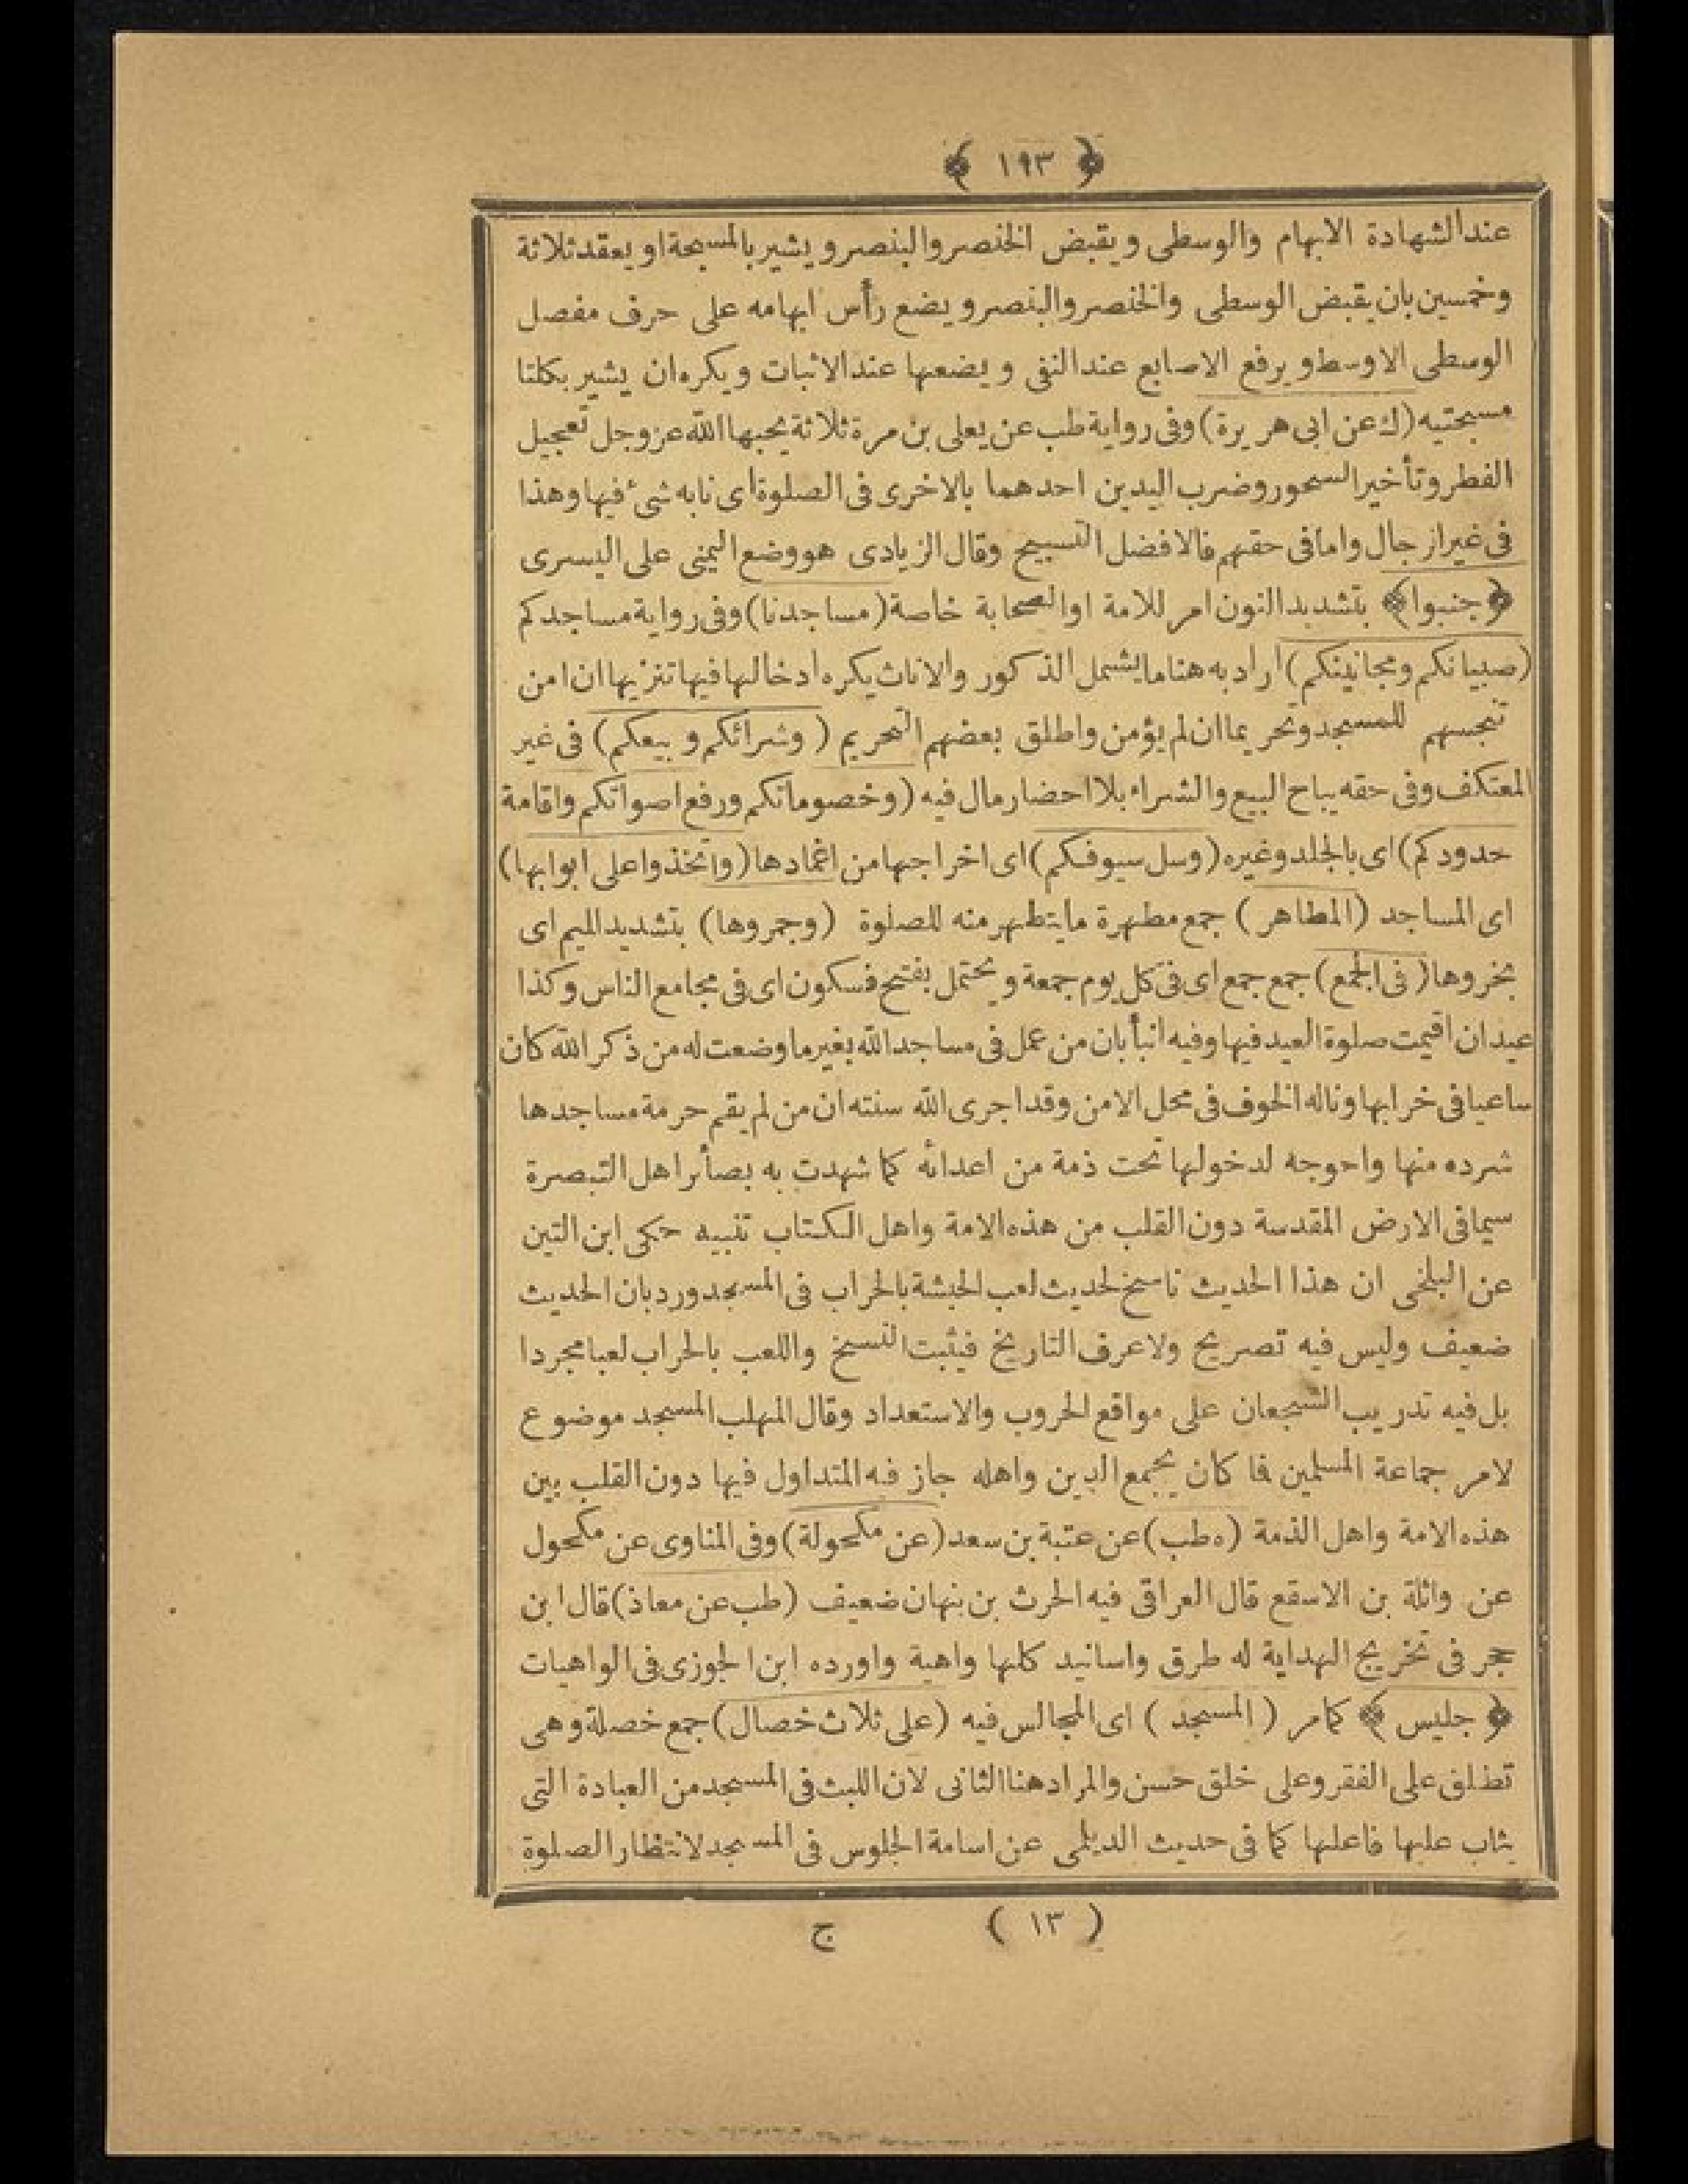 ﴿ ١٩٣ ﴾
عند الشهادة الابهام والوسطى ويقبض الخنصر والبنصر ويشير بالمسبحة او يعقد ثلاثة
وخمسين بان يقبض الوسطى والخنصر والبنصر ويضع رأس ابهامه على حرف مفصل
الوسطى الاوسط ويرفع الاصابع عند النفى ويضعها عند الاثبات ويكره ان يشير بكلتا
مسبحتيه (ك عن ابى هريرة) وفى رواية طب عن يعلى بن مرة ثلاثة يحبها الله عز وجل تعجيل
الفطر وتأخير السحور وضرب اليدين احدهما بالاخرى فى الصلوة اى نابه شئ فيها وهذا
فى غير ارجال واما فى حقهم فالافضل التسبيح وقال الزيادى هو وضع اليمنى على اليسرى
﴿جنبوا﴾ بتشديد النون امر للامة او الصحابة خاصة (مساجدنا) وفى رواية مساجدكم
(صبيانكم ومجانينكم) اراد به هنا ما يشمل الذكور والاناث يكره ادخالها فيها تنزيها ان امن
تنجسهم للمسجد وتحريما ان لم يؤمن واطلق بعضهم التحريم (وشرائكم وبيعكم) فى غير
المعتكف وفى حقه يباح البيع والشراء بلا احضار مال فيه (وخصوماتكم ورفع اصواتكم واقامة
حدودكم) اى بالجلد وغيره (وسل سيوفكم) اى اخراجها من اغمادها (واتخذوا على ابوابها)
اى المساجد (المطاهر) جمع مطهرة ما يتطهر منه للصلوة (وجمروها) بتشديد الميم اى
بخروها (فى الجمع) جمع جمع اى فى كل يوم جمعة ويحتمل بفتح فسكون اى فى مجامع الناس وكذا
عيد ان اقيمت صلوة العيد فيها وفيه انبأ بان من عمل فى مساجد الله بغير ما وضعت له من ذكر الله كان
ساعيا فى خرابها وناله الخوف فى محل الامن وقد اجرى الله سنته ان من لم يقم حرمة مساجدها
شرده منها واحوجه لدخولها تحت ذمة من اعدائه كما شهدت به بصائر اهل التبصرة
سيما فى الارض المقدسة دون القلب من هذه الامة واهل الكتاب تنبيه حكى ابن التين
عن البلخى ان هذا الحديث ناسخ لحديث لعب الحبشة بالحراب فى المسجد ورد بان الحديث
ضعيف وليس فيه تصريح ولا عرف التاريخ فيثبت النسخ واللعب بالحراب لعبا مجردا
بل فيه تدريب الشجعان على مواقع الحروب والاستعداد وقال المهلب المسجد موضوع
لامر جماعة المسلمين فا كان يجمع الدين واهله جاز فيه المتداول فيها دون القلب بين
هذه الامة واهل الذمة (ه طب) عن عتبة بن سعد (عن مكحولة) وفى المناوى عن مكحول
عن واثلة بن الاسقع قال العراقى فيه الحرث بن نبهان ضعيف (طب عن معاذ) قال ابن
حجر فى تخريج الهداية له طرق واسانيد كلها واهية واورده ابن الجوزى فى الواهيات
﴿ جليس ﴾ كمامر (المسجد) اى المجالس فيه (على ثلاث خصال) جمع خصلة وهى
تطلق على الفقر وعلى خلق حسن والمراد هنا الثانى لان اللبث فى المسجد من العبادة التى
يثاب عليها فاعلها كما فى حديث الديلمى عن اسامة الجلوس فى المسجد لانتظار الصلوة
( ١٣ ) ج